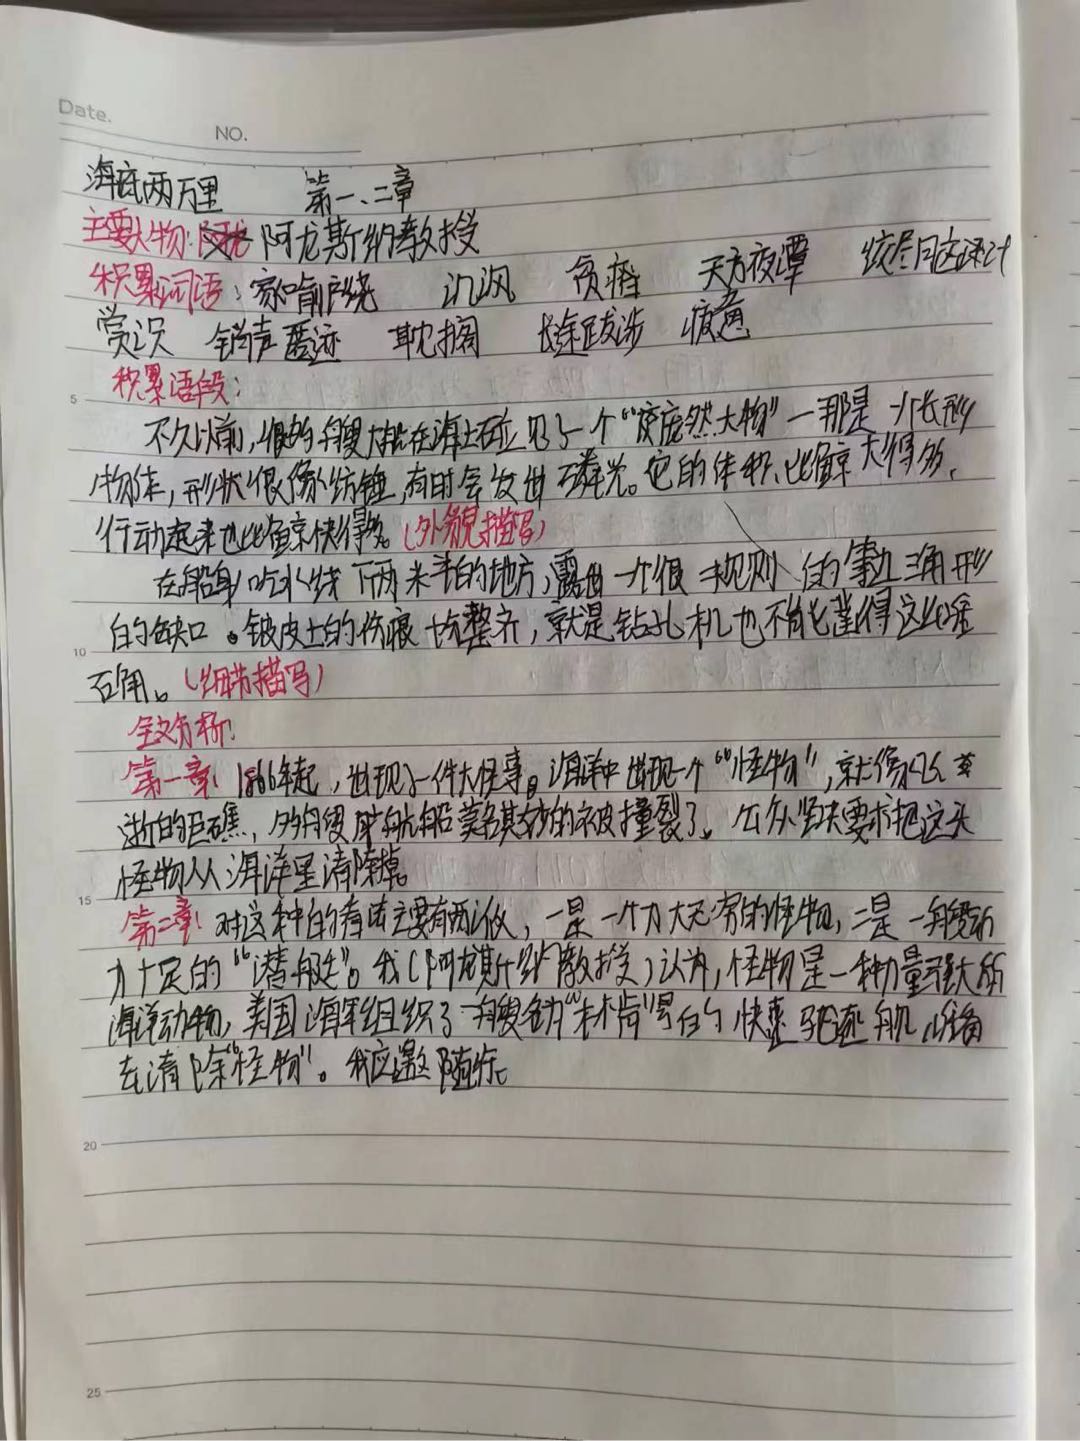 Date.
NO.
海底两万里 第一、二章
主要人物: 阿龙斯纳教授
积累词语: 家喻户绕 沉沨 贪婪 天方夜谭 绞尽
赏识 销声匿迹 耽搁 长途跋涉 疲惫
积累语段:
5
不久以前,很多艘大船在海上碰见了一个“庞然大物”一那是一个长形
物体,形状很像纺锤,有时会发出磷光。它的体积比鲸大得多,
行动起来也比鲸快得多。(外貌描写)
在船身吃水线下两米半的地方,露出一个很规则的等边三角形
10
的缺口。铍皮上的伤痕十分整齐,就是钻孔机也不能凿得这么准
确。(细节描写)
全文分析:
第一章: 1866年起,出现了一件大怪事。海洋中出现一个“怪物”,就像
逝的巨礁,多艘航船莫名其妙的被撞裂了。公众坚决要求把这头
15
怪物从海洋里清除掉。
第二章: 对这种的看法主要有两派,一是一个力大无穷的怪物,二是一艘动
力十足的“潜艇”。我(阿龙斯纳教授)认为,怪物是一种力量强大的
海洋动物,美国海军组织了一艘名为“林肯”号的快速驱逐舰准备
去清除“怪物”。我应邀随行。
20
25